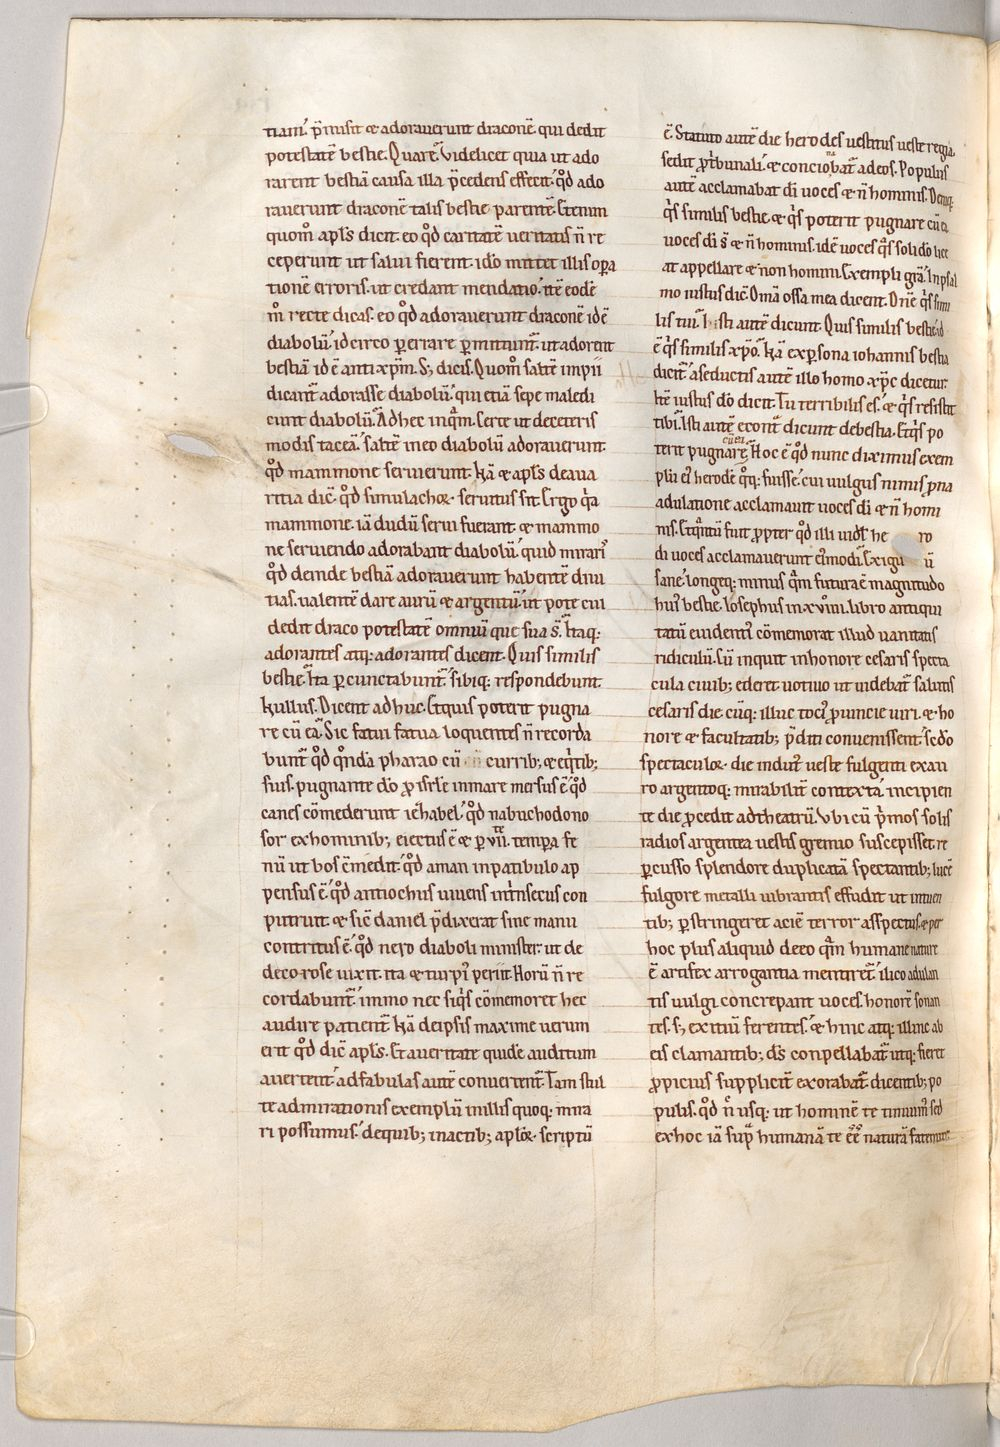 tiam. p̄misit & adorauerunt draconē. qui dedit
potestatē bestie. Quare. Videlicet quia ut ado
rarent bestiā causa illa p̄cedens effecit. qd̄ ado
rauerunt draconē talis bestie parentē. Etenim
quom̄ apl̄s dicit. eo qd̄ caritatē ueritatis n̄ re
ceperunt ut salui fierent. ido mittet illis opa
tionē erroris. ut credant mendatio. itē eodē
m̄ recte dicas. eo qd̄ adorauerunt draconē idē
diabolū. idcirco perrare pmittunt᷑. ut adorent
bestiā idē antixp̄m. S; dicis. Quom̄ saltē impii
dicant᷑ adorasse diabolū. qui etiā sepe maledi
cunt diabolū. Adhec inquā. certe ut deceteris
modis taceā. saltē ineo diabolū adorauerunt.
qd̄ mammone seruierunt. Nā & apl̄s deaua
ritia dic̄. qd̄ simulachoꝝ seruitus sit. Ergo qa
mammone. iā dudū serui fuerant. & mammo
ne seruiendo adorabant diabolū. quid mirari
qd̄ deinde bestiā adorauerunt habentē diui
tias. ualentē dare aurū & argentū. ut pote cui
dedit draco potestatē omniū que sua s̄. Itaq:
adorantes atq: adorantes dicent. Quis similis
bestie. Ita pcunctabunt᷑. sibiq: respondebunt.
Nullus. Dicent adhuc. Et quis poterit pugna
re cū ea. Sic fatui fatua loquentes n̄ recorda
bunt᷑ qd̄ qndā pharao cū curribꝫ & eqtibꝫ
suis. pugnante dō p isrł inmare mersus ē. qd̄
canes cōmederunt iezhabel. qd̄ nabuchodono
sor exhominibꝫ eiectus ē & p vii. tempa fe
nū ut bos cōmedit. qd̄ aman inpatibulo ap
pensus ē. qd̄ antiochus uiuens intrinsecus con
putruit. & sic daniel p̄dixerat sine manu
contritus ē. qd̄ nero diaboli minister. ut de
decorose uixit. ita & turpit᷑ periit. Horū n̄ re
cordabunt᷑. immo nec siqs cōmemoret hec
audire patient᷑. Nā deipsis maxime uerum
erit qd̄ dic̄ apl̄s. Et aueritate quidē auditum
auertent. adfabulas autē conuertent᷑. Tam stul
te admirationis exemplū inillis quoq: mira
ri possumus. dequibꝫ inactibꝫ aploꝝ scriptū
ē. Statuto autē die herodes uestitus ueste regia
sedit p tribunali. & concionabat᷑ adeos. Populus
autē acclamabat dī uoces & n̄ hominis. Deniq:
qs similis bestie. & qs poterit pugnare cū ea
uoces dī s̄ & n̄ hominis. idē uoces qs soli dō lice
at appellare & non homini. Exempli gra. Inpsal
mo iustus dic̄. Om̄a ossa mea dicent. Dn̄e qs simi
lis tui. Isti autē dicunt. Quis similis bestie. id
ē qs similis xp̄o. Nā expsona iohannis bestia
dicit᷑. aseductis autē illo homo & xp̄c dicetur.
Itē iustus dō dicit. Tu terribilis es. & qs resistit
tibi. Isti autē econt dicunt debestia. Et qs po
terit pugnare cū ea. Hoc ē qd̄ nunc diximus exem
plū ei herodē qq: fuisse. cui uulgus nimis pna
adulatione acclamauit uoces dī & n̄ homi
nis. Et quitū fuit ppter qd̄ illi uidł he ro
di uoces acclamauerunt ei᷑modi. Exigu ū
sane. longeq: minus qm futura ē magnitudo
hui᷑ bestie. Iosephus inxviiii. libro antiqui
tatū euident᷑ cōmemorat illud uanitatis
ridiculū. Cū inquit inhonore cesaris specta
cula ciuibꝫ ederet. uotiuo ut uidebat᷑ salutis
cesaris die. cūq: illuc toti᷑ puincie uiri. & ho
nore & facultatibꝫ p̄diti conuenissent. sc̄do
spectaculoꝝ die indut᷑ ueste fulgenti exau
ro argentoq: mirabilit᷑ contexta. incipien
te die pcedit adtheatrū. Vbi cū p̄mos solis
radios argentea uestis gremio suscepisset. re
pcusso splendore duplicatā spectantibꝫ lucē
fulgore metalli uibrantis effudit. ut intuen
tibꝫ pstringeret aciē terror aspectus. & per
hoc plus aliquid deeo qm humane nature
ē artifex arrogantia mentiret᷑. ilico adulan
tis uulgi concrepant uoces. honorē sonan
tes. s; exitiū ferentes. & hinc atq: illinc ab
eis clamantibꝫ ds̄ conpellabat᷑. utq: fieret
ppicius supplicit᷑ exorabat᷑. dicentibꝫ po
pulis. qd̄ n̄ usq: ut hominē te timuim᷑ sed
exhoc iā sup humanā te ēē naturā fatemur.